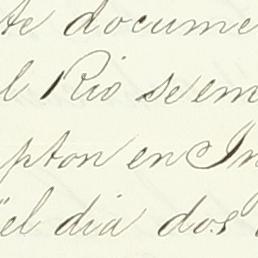 te docume
l Rio se em
pton en In
"el dia dos